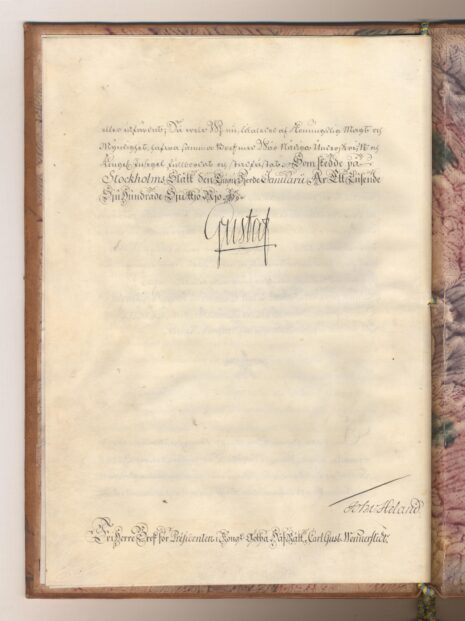 eller utfärdat; Så wele Wj nu, likaledes af Konungslig Magt och
Myndighet, hafwa samma Bref med Wår Nådiga Underskrift och
Kongl. Insegel fullbordat och stadfästat. Som skedde på
Stockholms Slått den Tiugu Fjerde Januarii, År Ett Tusende
Sju Hundrade Sjuttio Nijo.
Gustaf
Fri Herre Bref för Præsidenten i Kongl. Götha HofRätt, Carl Gust. Wennerstedt.